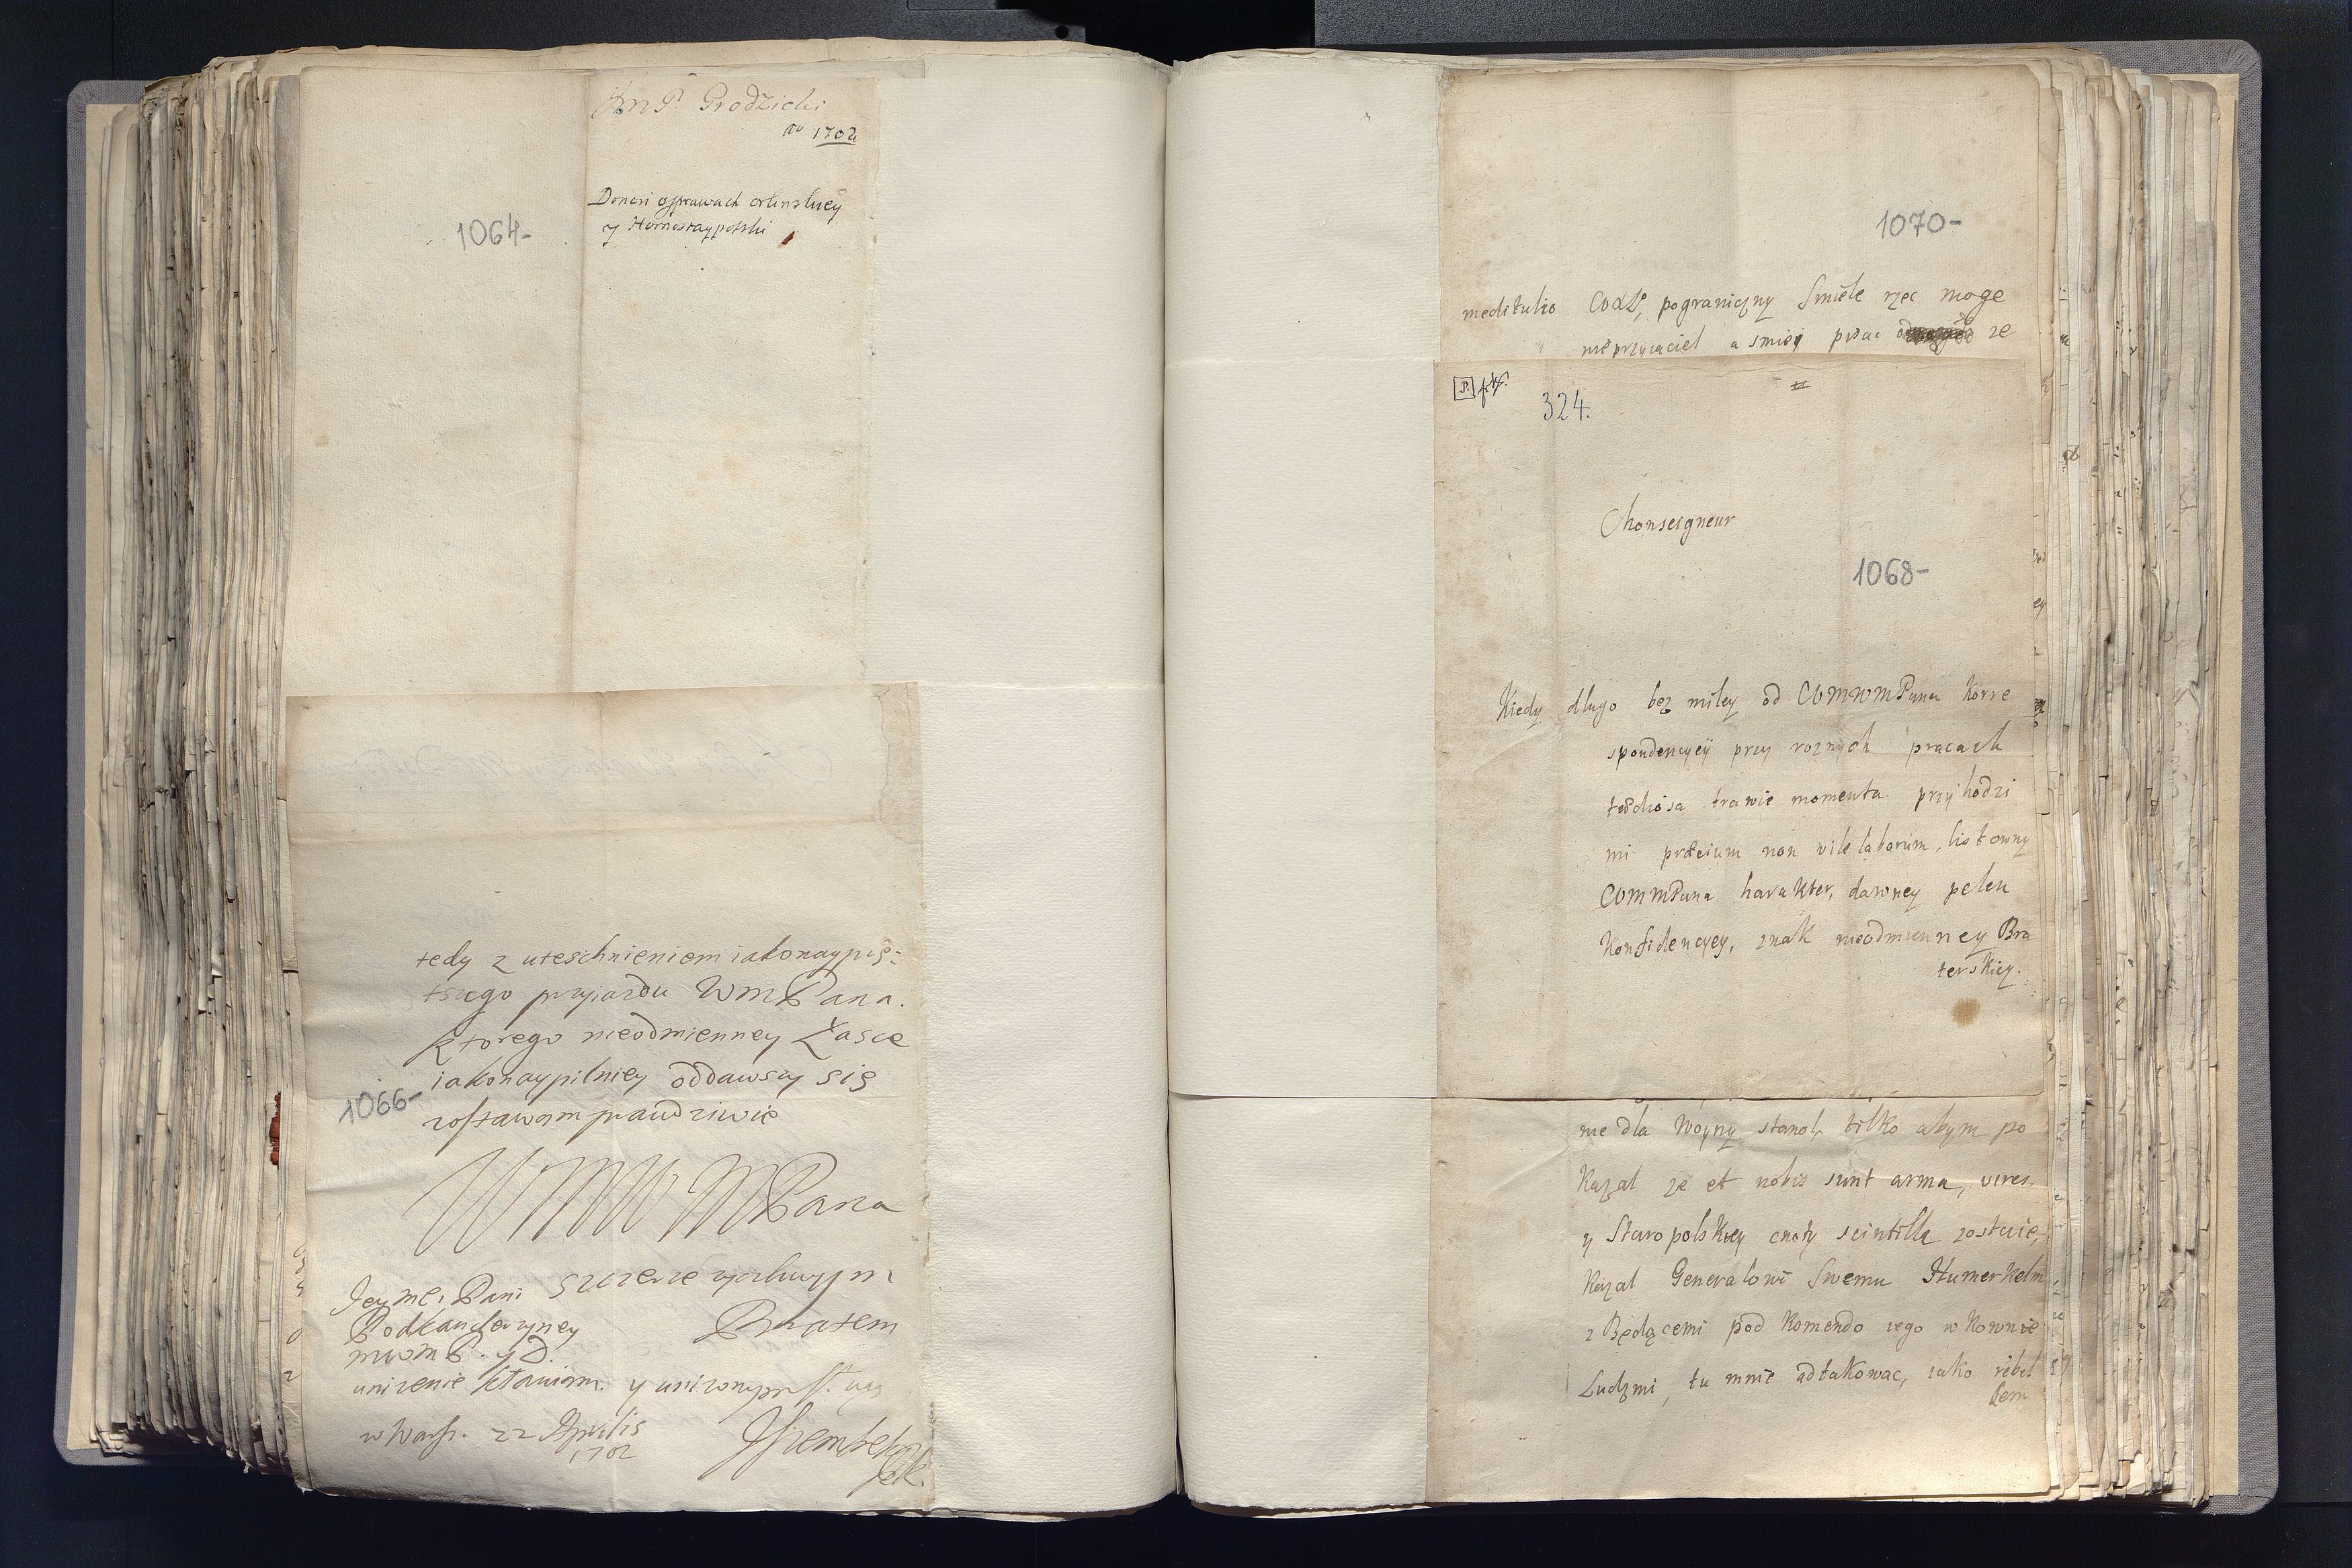 JmP. Grodzicki
Ao 1702
Donosi o sprawach orlinskiey
y Hornostaypolski
1064-
tedy z uteschnieniem iakonaypię:
tszego przyiazdu WMPana.
ktorego nieodmienney Łasce
iakonaypilniey oddawszy się
1066-
zostawam prawdziwie
WMWMPana
Szczerze zyczliwym
Bratem
Jey Mć. Pani
Podkanclerzyney
mwmP. y D.
unizenie kłaniam.
y unizonym sługą
w Warsz. 22 Aprilis
1702
JSzembek
1070-
meditulio pograniczny Smiele rzec moge
nieprzyiaciel a smiey pisac ze
324.
Monseigneur
1068-
Kiedy dlugo bez miley od WMWMPana Korre
spondencyey przy roznych pracach
tædiosa trawie momenta przyhodzi
mi præcium non vile laborum, listowny
WMMPana harakter, dawney pelen
Konfidencyey, znak nieodmienney Bra
terskiey.
nie dla Woyny stanol, tilko abym po
Kazal ze et nobis sunt arma, vires
y Staropolskiey cnoty scintilla zostaie,
Kazal Generalowi Swemu Humerkelm
z Będącemi pod Komendo iego w Kownie
Ludzmi, tu mnie adtakowac, iako rebel
lem